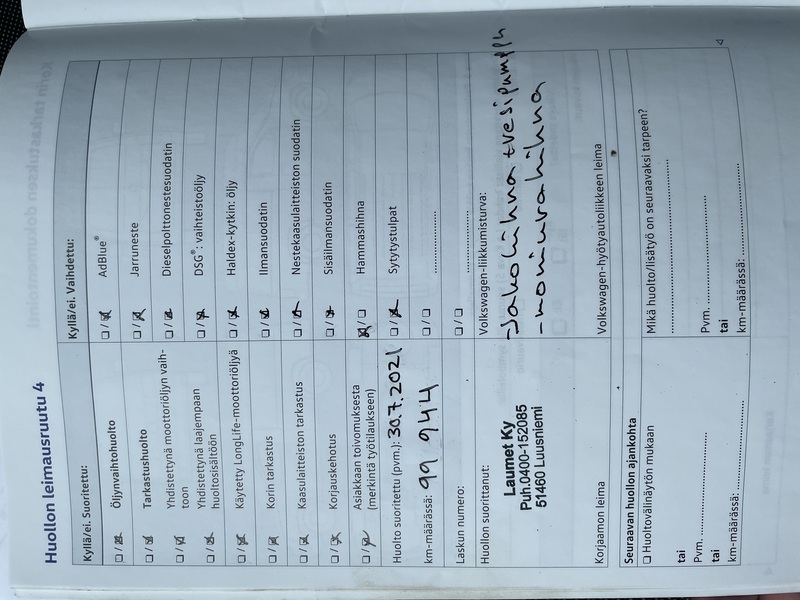 Huollon leimausruutu 4
Kyllä/ei. Suoritettu:
Öljynvaihtohuolto
Tarkastushuolto
Yhdistettynä moottoriöljyn vaih-
toon
Yhdistettynä laajempaan
huoltosisältöön
Käytetty LongLife-moottoriöljyä
Korin tarkastus
Kaasulaitteiston tarkastus
Korjauskehotus
Asiakkaan toivomuksesta
(merkintä työtilaukseen)
Kyllä/ei. Vaihdettu:
AdBlue®
Jarruneste
Dieselpolttonestesuodatin
DSG®: vaihteistoöljy
Haldex-kytkin: öljy
Ilmansuodatin
Nestekaasulaitteiston suodatin
Sisäilmansuodatin
Hammashihna
Sytytystulpat
Huolto suoritettu (pvm.): 30.7.2021
km-määrässä: 99 944
Laskun numero:
Huollon suorittanut:
Laumet Ky
Puh.0400-152085
51460 Luusniemi
Korjaamon leima
Volkswagen-liikkumisturva:
-Jakohihna + vesipumppu
-moniurahihna
Volkswagen-hyötyautoliikkeen leima
Seuraavan huollon ajankohta
Huoltovälinäytön mukaan
tai
Pvm.
tai
km-määrässä:
Mikä huolto/lisätyö on seuraavaksi tarpeen?
Pvm.
tai
km-määrässä: